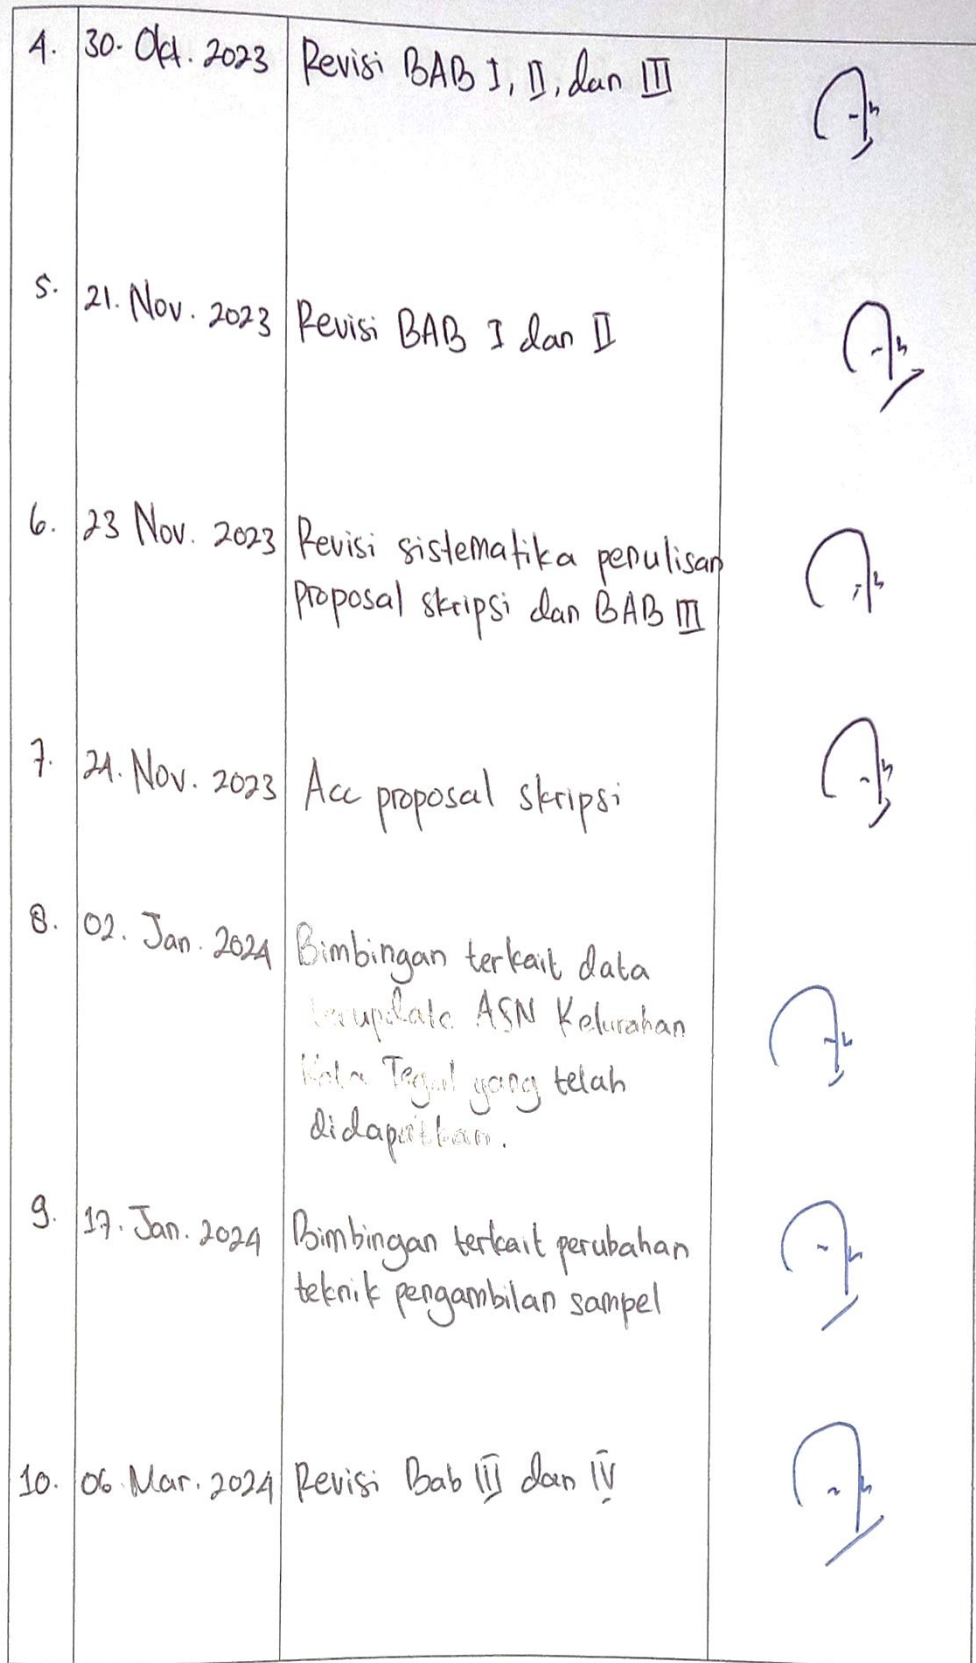 4. 30. Okt. 2023 Revisi BAB I, II, dan III
5. 21. Nov. 2023 Revisi BAB I dan II
6. 23 Nov. 2023 Revisi sistematika penulisan
proposal skripsi dan BAB III
7. 24. Nov. 2023 Acc proposal skripsi
8. 02. Jan. 2024 Bimbingan terkait data
terupdate ASN Kelurahan
Kota Tegal yang telah
didapatkan.
9. 17. Jan. 2024 Bimbingan terkait perubahan
teknik pengambilan sampel
10. 06 Mar. 2024 Revisi Bab III dan IV